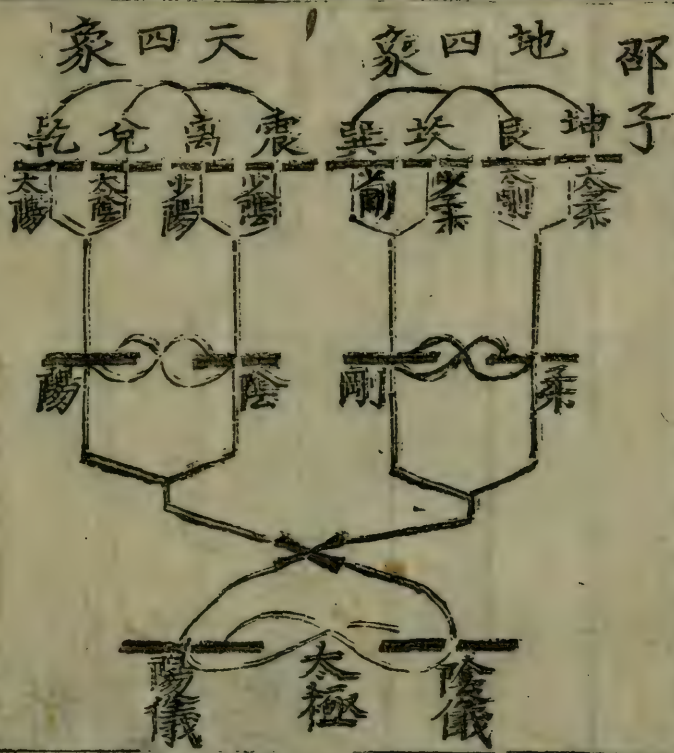 邵子
地四象
天四象
坤 艮 坎 巽 震 离 兌 乾
太柔 太剛 少柔 少剛 少陰 少陽 太陰 太陽
柔 剛 陰 陽
陰儀 太極 陽儀